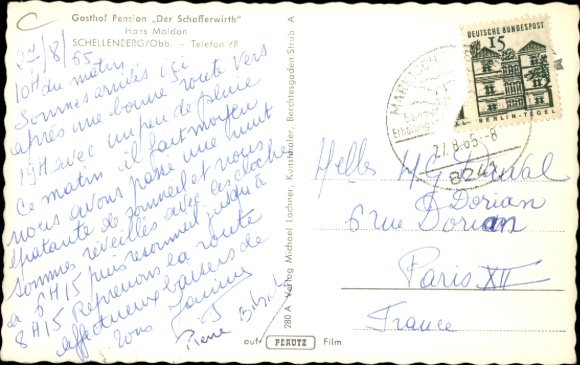 Gasthof Pension „Der Schafferwirth"
Hans Maldan
SCHELLENBERG/Obb. - Telefon 68
27/8/65
10H du matin
Sommes arrivés ici
après une bonne route vers
19H avec un peu de pluie
Ce matin il fait moyen
nous avons passé une nuit
épatante de sommeil et nous
sommes réveillés avec les cloches
à 6H15 puis resommeil jusqu'à
8H15 Reprenons la route
affectueux baisers de
tous
Janine
Pierre
280 A Verlag Michael Lochner, Kunstmaler, Berchtesgaden Strub A
auf PERUTZ Film
DEUTSCHE BUNDESPOST
15
BERLIN-TEGEL
27.8.65-8
8241
Melles M G Duval
Dorian
6 rue Dorian
Paris XII
France